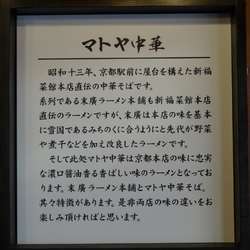 マトヤ中華
昭和十三年、京都駅前に屋台を構えた新福
菜館本店直伝の中華そばです。
系列である末廣ラーメン本舗も新福菜館本店
直伝のラーメンですが、末廣は本店の味を基本
に雪国であるみちのくに合うようにと先代が野菜
や煮干などを加え改良したラーメンです。
そして此処マトヤ中華は京都本店の味に忠実
な濃口醤油香る香ばしい味のラーメンとなってお
ります。末廣ラーメン本舗とマトヤ中華そば。
其々特徴があります。是非両店の味の違いをお
楽しみ頂ければと思います。